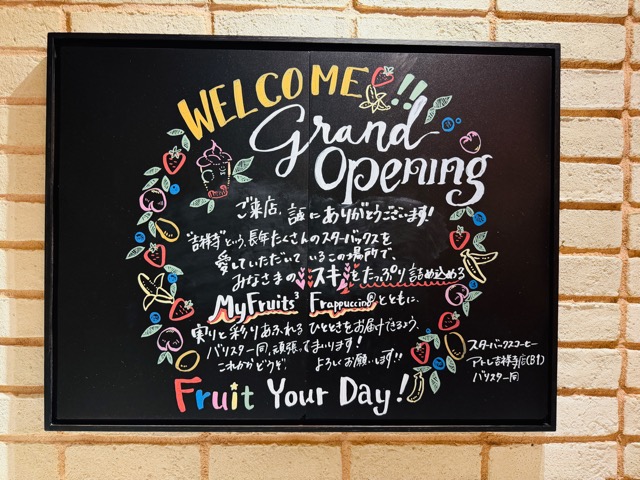 WELCOME!!
Grand
Opening
ご来店、誠にありがとうございます!
"吉祥寺"という、長年たくさんのスターバックスを
愛していただいているこの場所で、
みなさまの♥スキ♥をたっぷり詰め込める
MyFruits³ Frappuccino®とともに、
実りと彩りあふれるひとときをお届けできるよう、
バリスタ一同、頑張ってまいります!
これからどうぞ、よろしくお願いします!!
Fruit Your Day!
スターバックスコーヒー
アトレ吉祥寺店(B1)
バリスタ一同